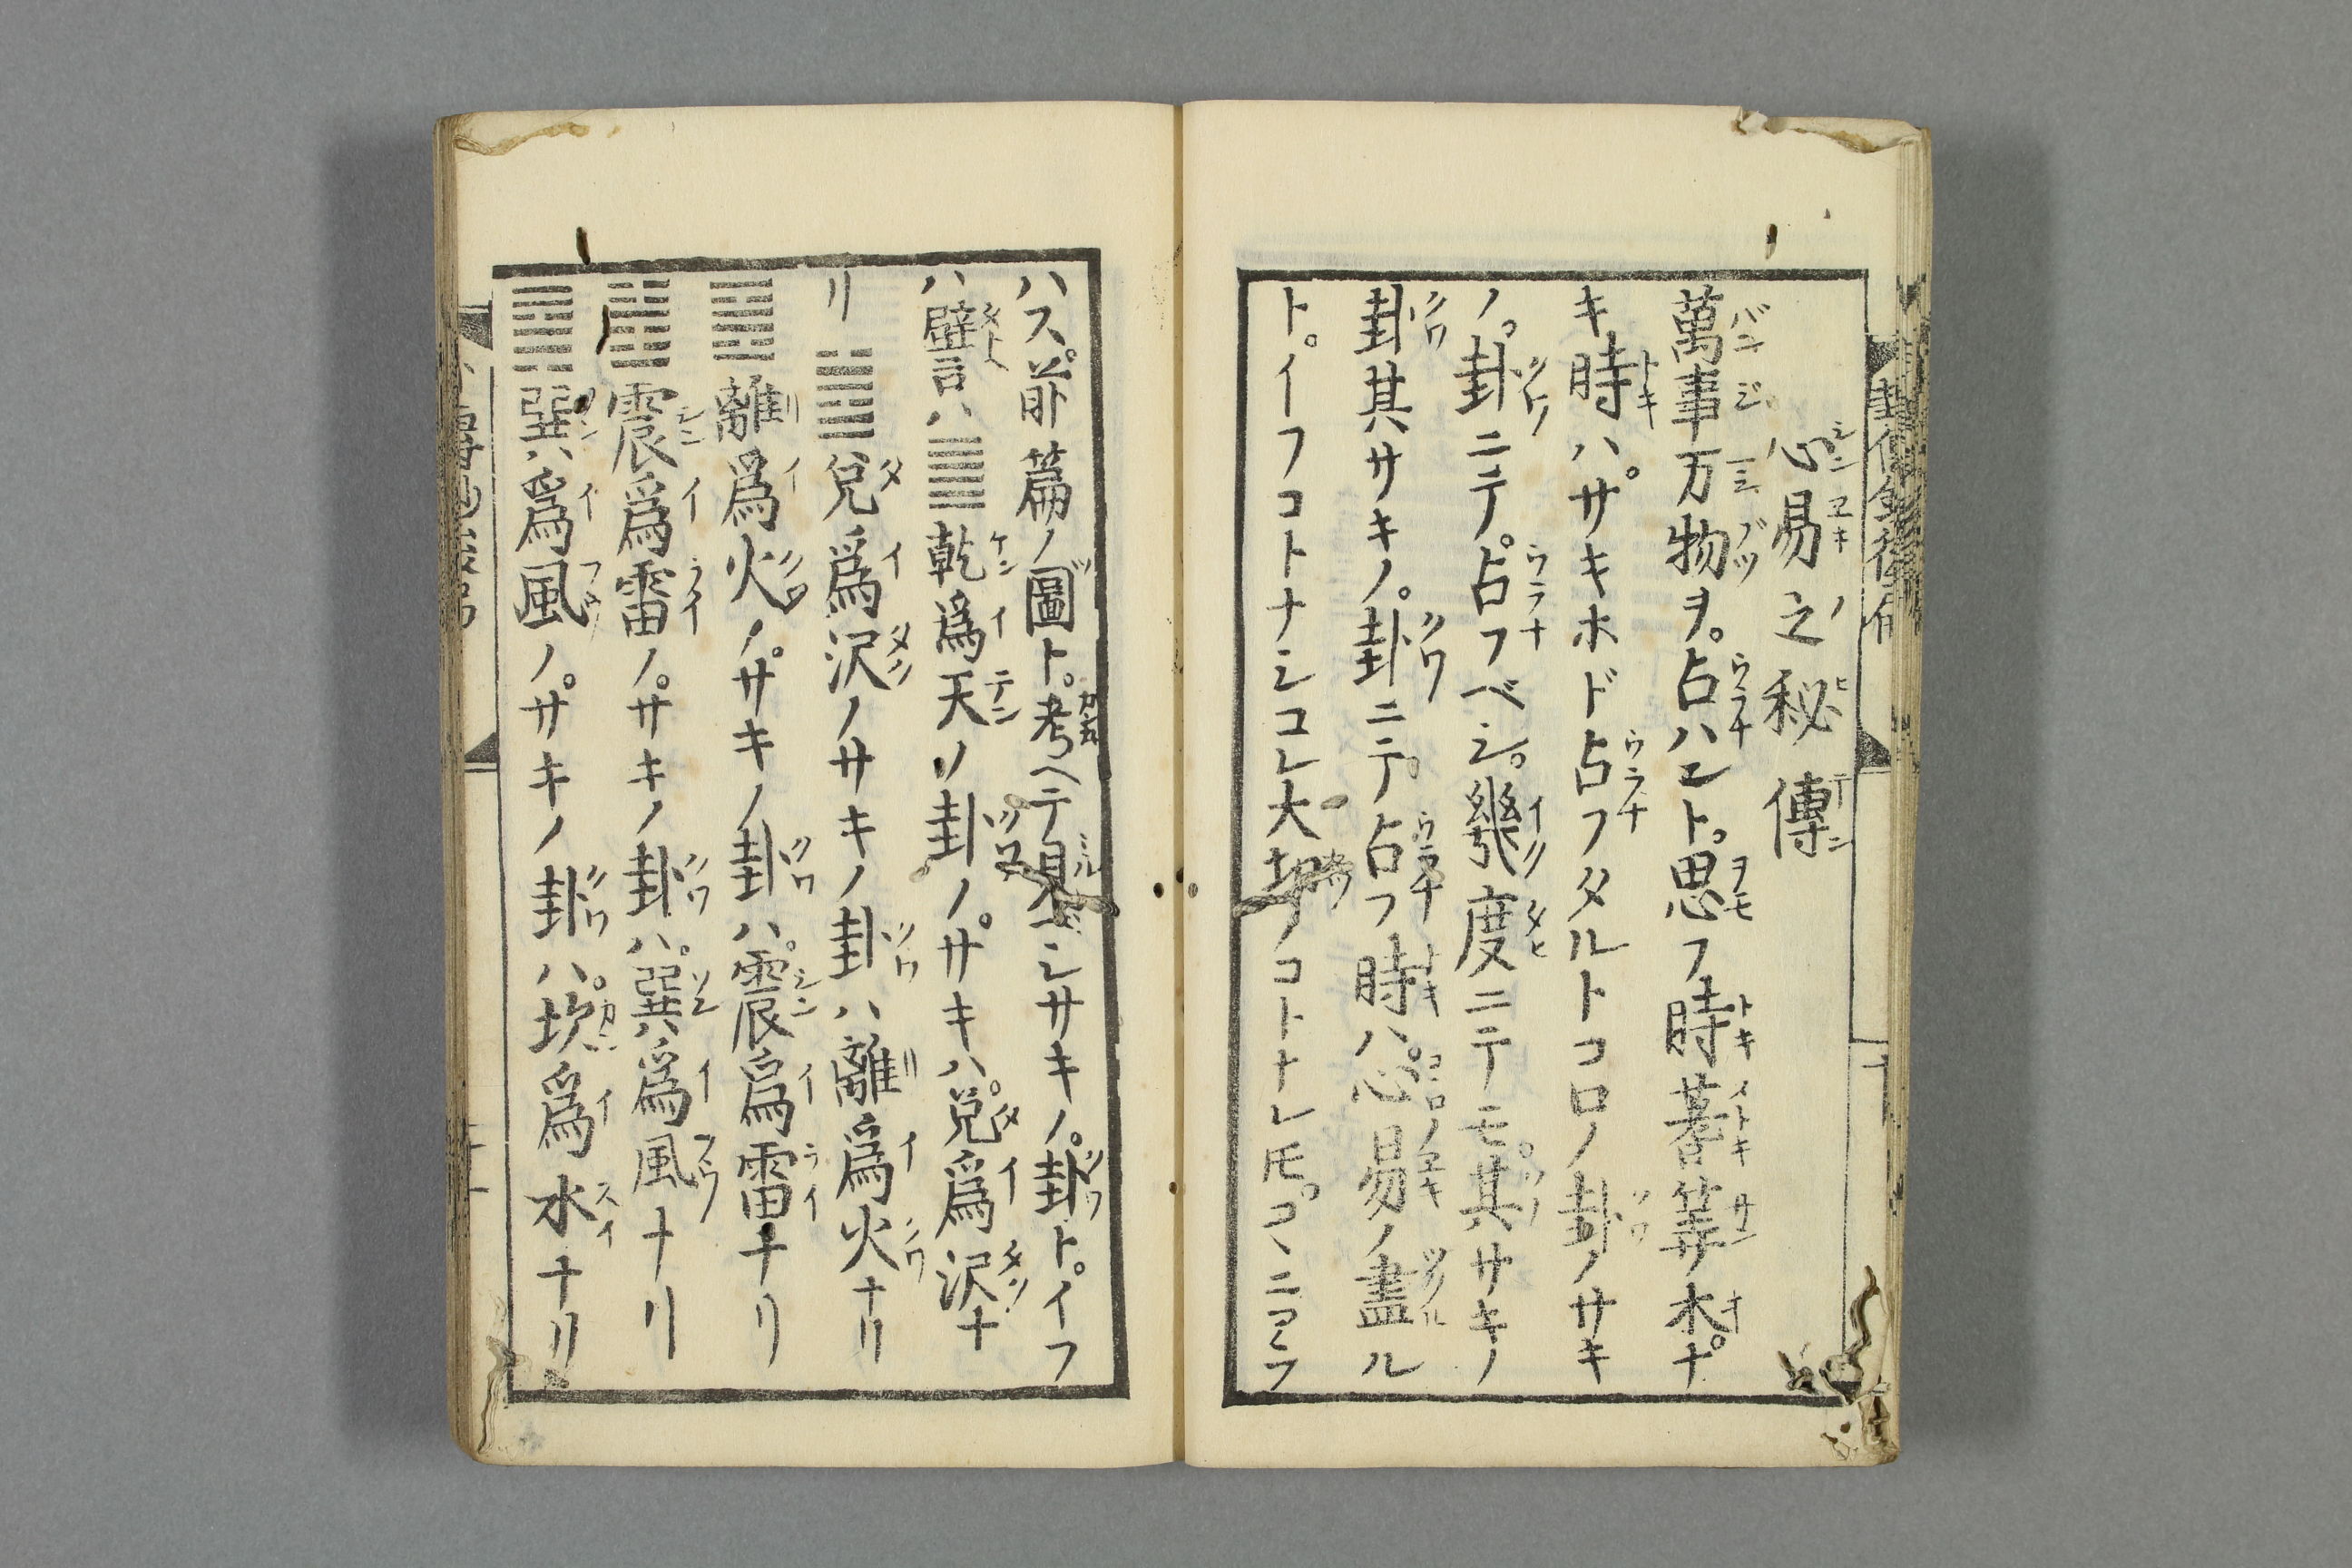 心易之秘傳
萬事万物ヲ。占ハント。思フ時蓍筭木。ナ
キ時ハ。サキホド占フタルトコロノ卦ノサキ
ノ。卦ニテ。占フベシ。幾度ニテモ。其サキノ
卦其サキノ。卦ニテ。占フ時ハ。心易ノ盡ル
ト。イフコトナシコレ大切ノコトナレ𪜈。コヽニアラ
ハス。前篇ノ圖ト。考ヘテ見ベシサキノ。卦ト。イフ
ハ譬ハ䷀乾爲天ノ卦ノ。サキハ。兌爲沢ナ
リ䷹兌爲沢ノサキノ卦ハ離爲火ナリ
䷝離爲火ノ。サキノ卦ハ。震爲雷ナリ
䷲震爲雷ノ。サキノ卦ハ。巽爲風ナリ
䷸巽ハ爲風ノ。サキノ卦ハ。坎爲水ナリ